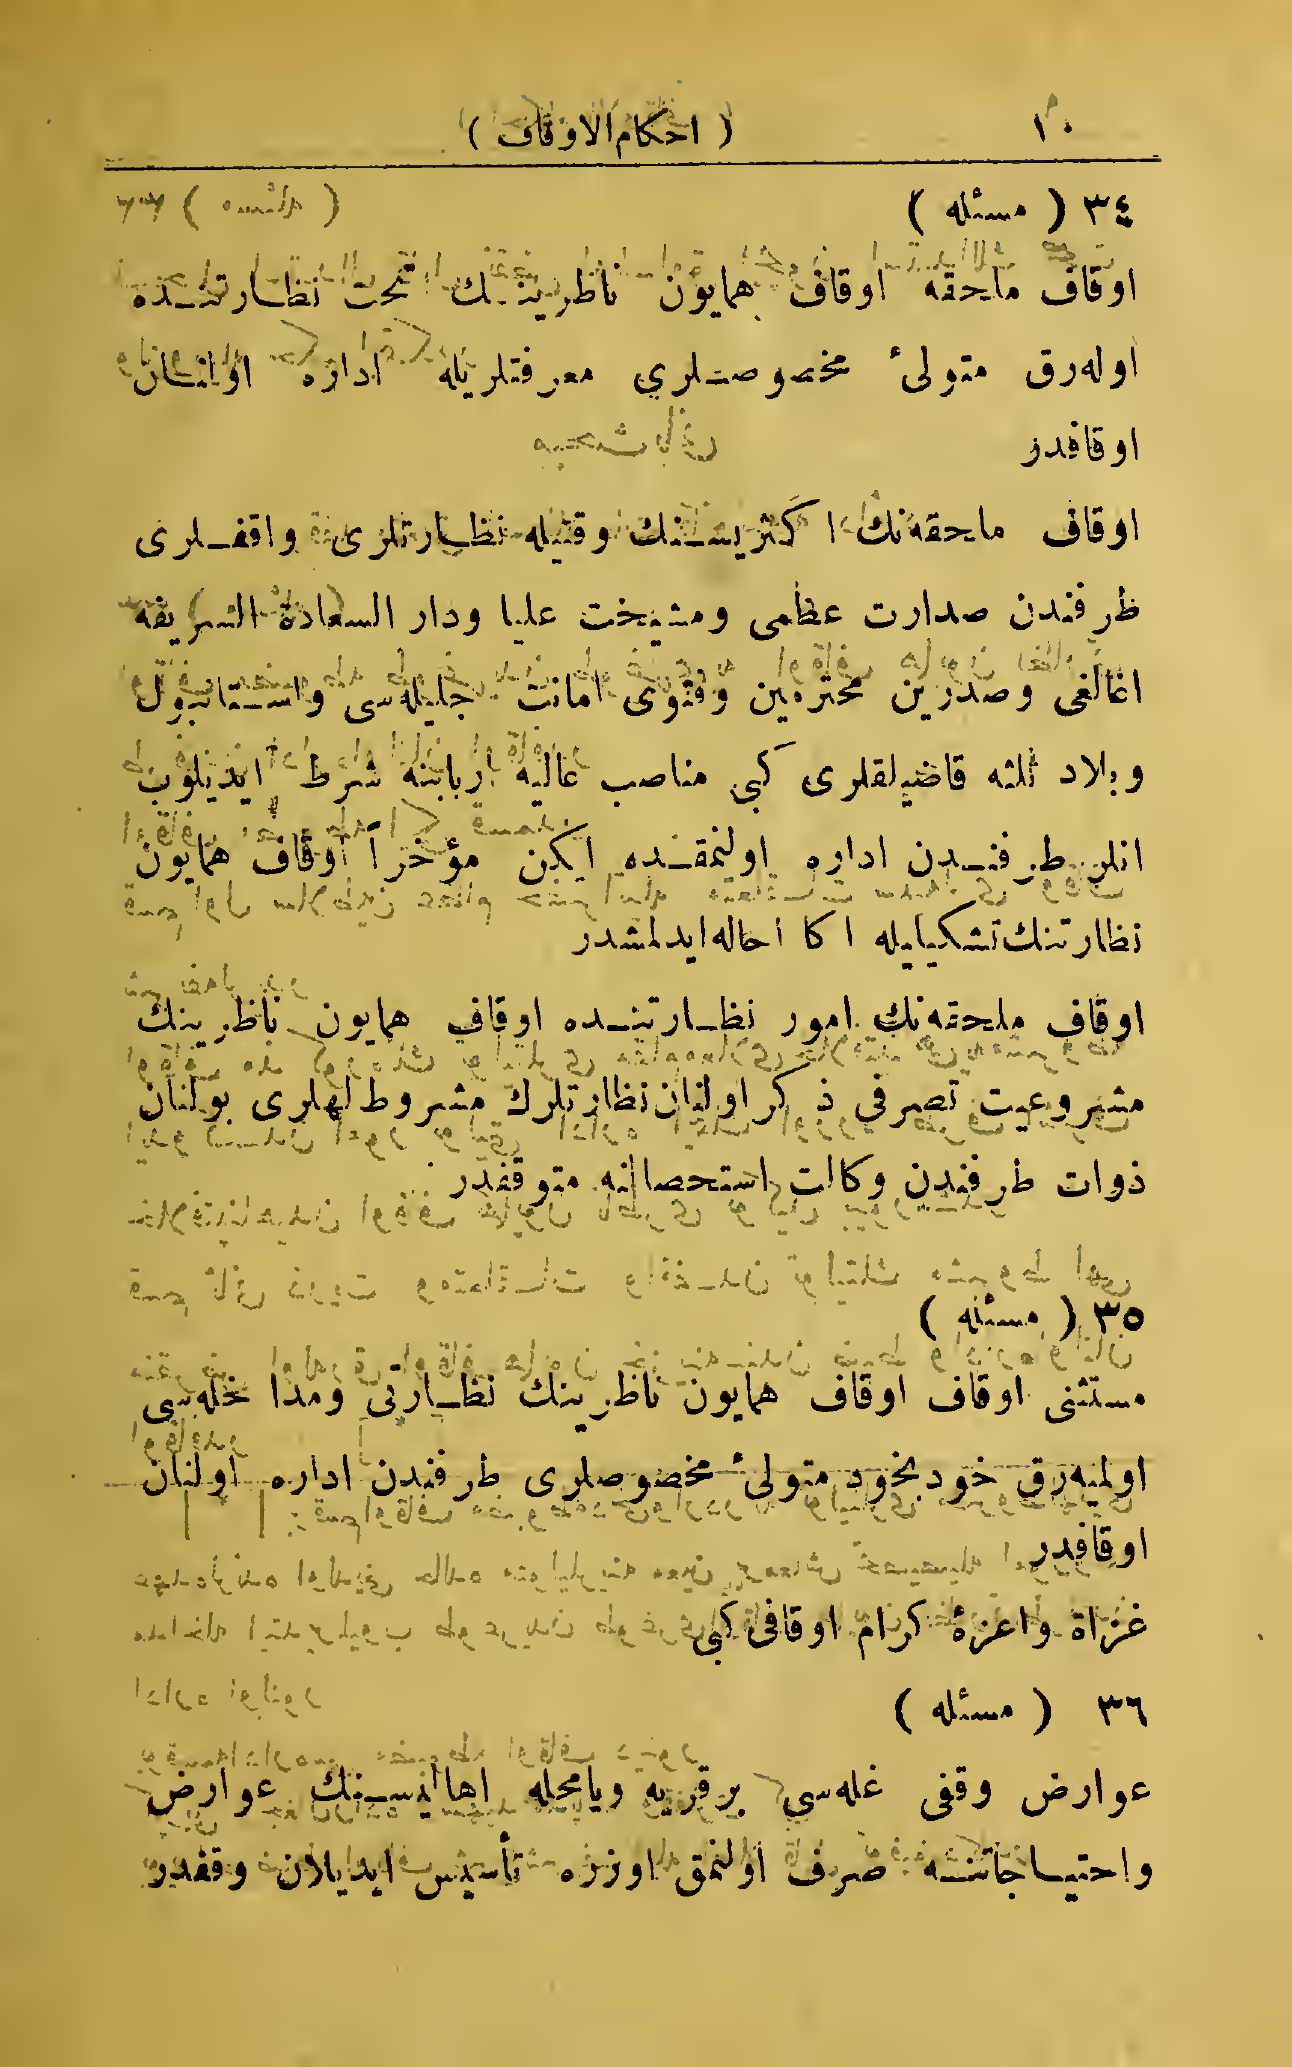 ١٠ ( احكام الاوقاف )
٣٤ ( مسئله )
اوقاف ملحقه اوقاف همايون ناظرينك تحت نظارتنده
اوله‌رق متولیٔ مخصوصلري معرفتلريله اداره اولنان
اوقافدر
اوقاف ملحقه‌نك اكثريسنك وقتيله نظارتلری واقفلری
طرفندن صدارت عظمی ومشيخت عليا ودار السعادة الشريفه
اغالغی وصدرين محترمين وفتوی امانت جليله‌سی واستانبول
وبلاد ثلثه قاضيلقلری كبی مناصب عاليه اربابنه شرط ايديلوب
انلر طرفندن اداره اولنمقده ايكن مؤخراً اوقاف همايون
نظارتنك تشكيليله اكا احاله ايدلمشدر
اوقاف ملحقه‌نك امور نظارتنده اوقاف همايون ناظرينك
مشروعيت تصرفي ذكر اولنان نظارتلرك مشروط لهلری بولنان
ذوات طرفندن وكالت استحصالنه متوقفدر
٣٥ ( مسئله )
مستثنی اوقاف اوقاف همايون ناظرينك نظارتی ومداخله‌سی
اولميه‌رق خودبخود متولیٔ مخصوصلری طرفندن اداره اولنان
اوقافدر
غزاة واعزۀ كرام اوقافی كبی
٣٦ ( مسئله )
عوارض وقفی غله‌سي برقريه ويامحله اهاليسنك عوارض
واحتياجاتنه صرف اولنمق اوزره تأسيس ايديلان وقفدر